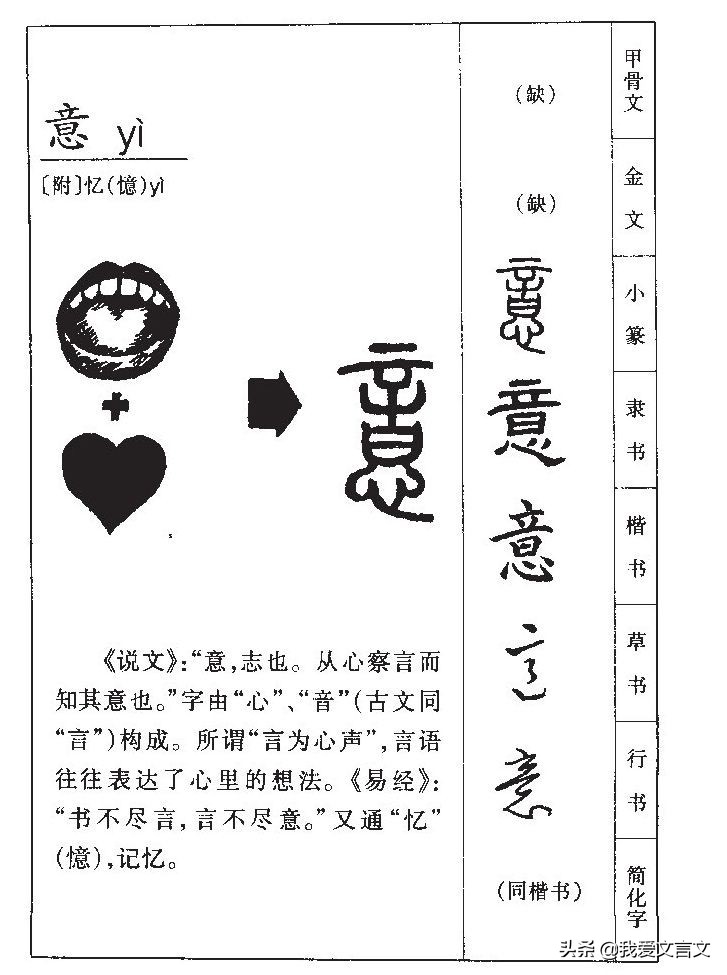 意 yì
〔附〕忆(憶)yì
意
《说文》:“意,志也。从心察言而
知其意也。”字由“心”、“音”(古文同
“言”)构成。所谓“言为心声”,言语
往往表达了心里的想法。《易经》:
“书不尽言,言不尽意。”又通“忆”
(憶),记忆。
(缺) 甲骨文
(缺) 金文
意 小篆
意 隶书
意 楷书
意 草书
意 行书
(同楷书) 简化字
头条 @我爱文言文